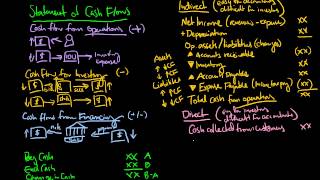 Statement of Cash Flows
Cash flow from operations (-+)
$ → IOU →
Cash flow for Investing (-)
$ → → $
Cash flows from Financing (-/+)
$
Beg Cash XX A
End Cash XX B
Change in Cash XX B-A
Indirect
difficult for investors)
Net Income (revenues - expenses) XX
+Depreciation XX
Op. assets/liabilities (changes)
▲ Accounts receivable XX
▼ Inventory XX
▲ Accounts Payable XX
▼ Expense XX
Total cash from operations XX
Assets
↑ ↓CF
↓ ↑CF
Liabilities
↑ ↑CF
↓ ↓CF
Direct
difficult for accountants)
Cash collected from customers XX